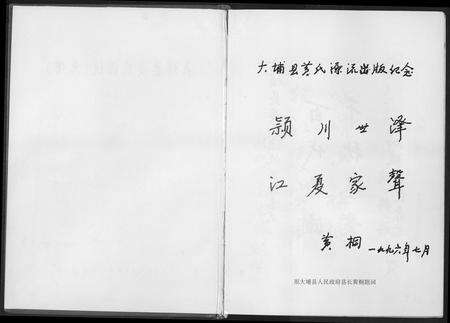 大埔县黄氏源流出版纪念
颍川世泽
江夏家聲
黄桐 一九九六年七月
原大埔县人民政府县长黄桐题词